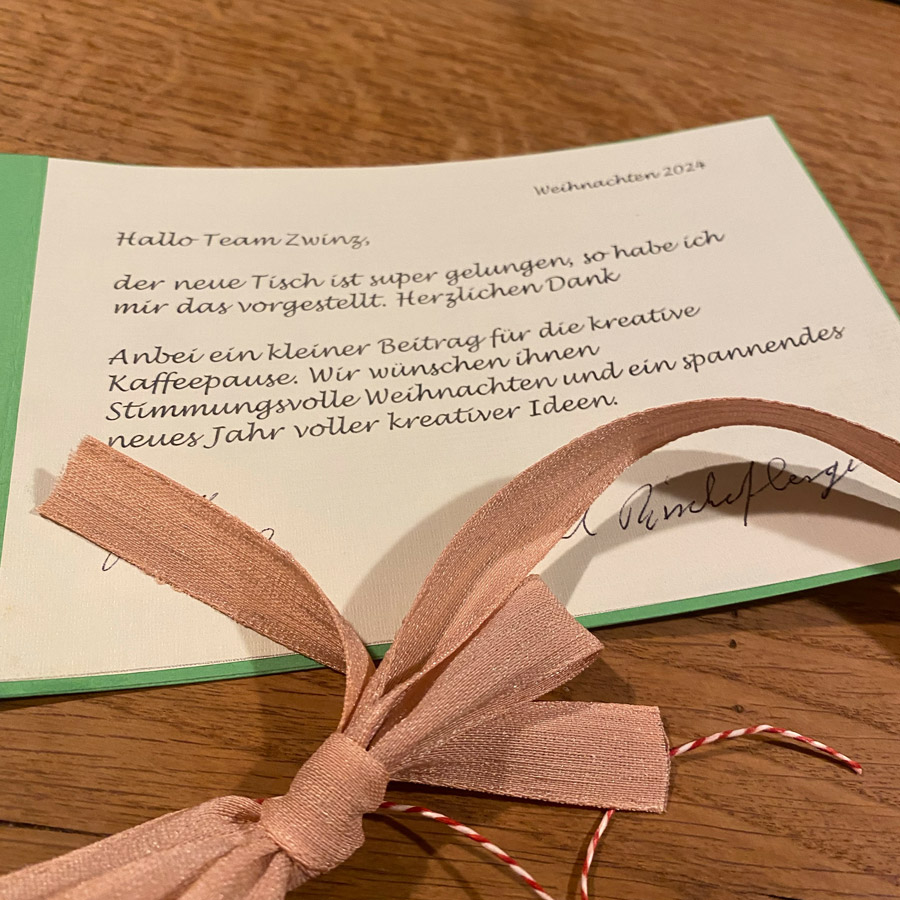 Weihnachten 2024
Hallo Team Zwinz,
der neue Tisch ist super gelungen, so habe ich
mir das vorgestellt. Herzlichen Dank
Anbei ein kleiner Beitrag für die kreative
Kaffeepause. Wir wünschen ihnen
Stimmungsvolle Weihnachten und ein spannendes
neues Jahr voller kreativer Ideen.